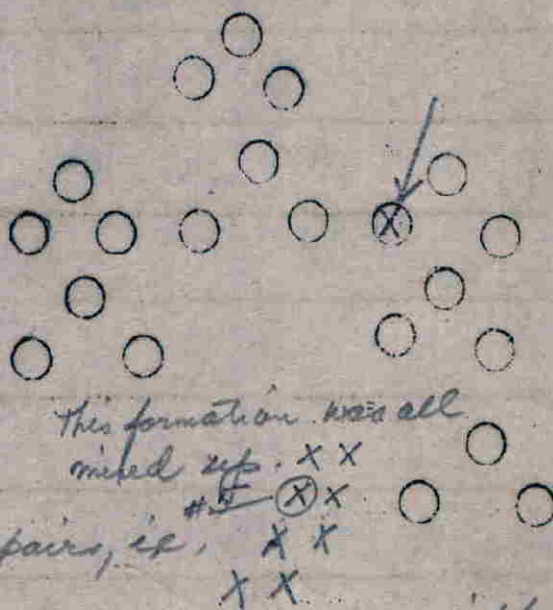 X
This formation was all
mixed up. X X
#3 X X
pairs, ie, X X
X X